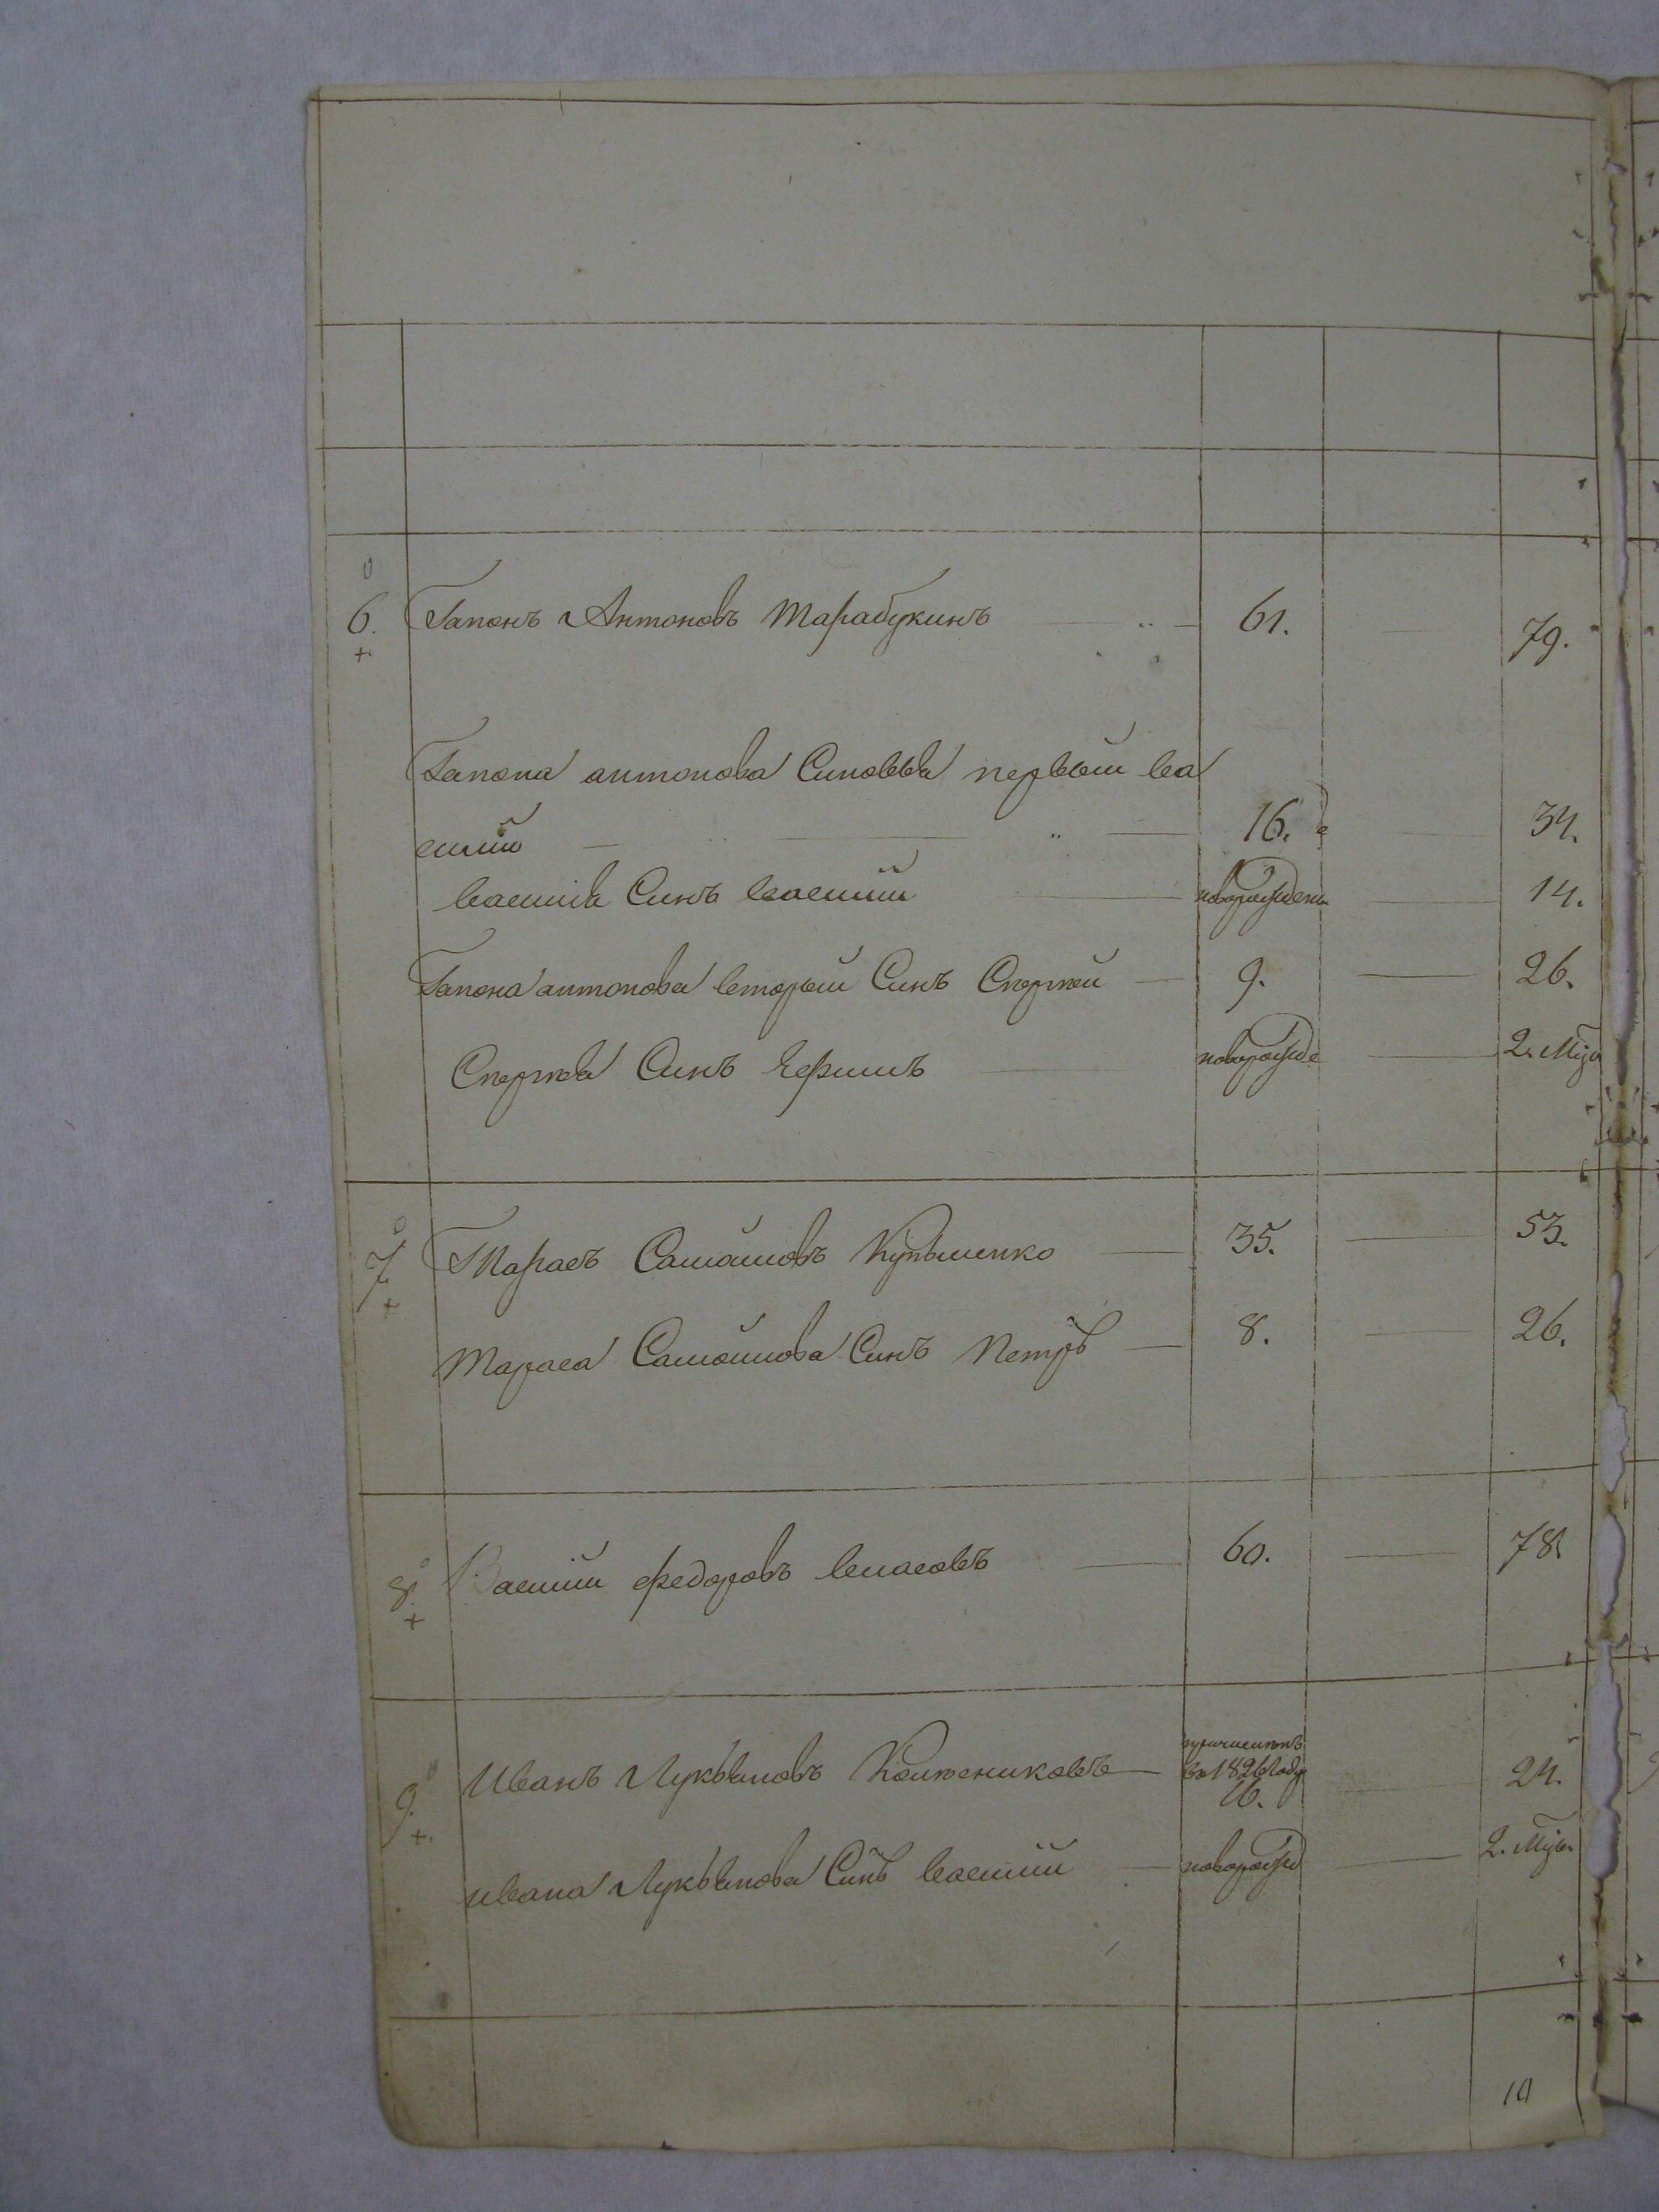 6. Гапонъ Антоновъ Тарабукинъ 61. 79.
Гапона антонова Синовья первый ва
силий 16. 34.
василія Синъ василий новорожденъ 14.
Гапона антонова вторый Синъ Сергей 9. 26.
Сергея Синъ Ефимъ новорожде 2. Мца
7. Тарасъ Самойловъ 35. 53.
Тараса Самойлова Синъ Петръ 8. 26.
8. Василий федоровъ власовъ 60. 78
причисленъ
9. Иванъ Лукьяновъ Колесниковъ в 1826 году 24.
16.
ивана Лукьянова Синъ василий новорожд 2. Мца
10